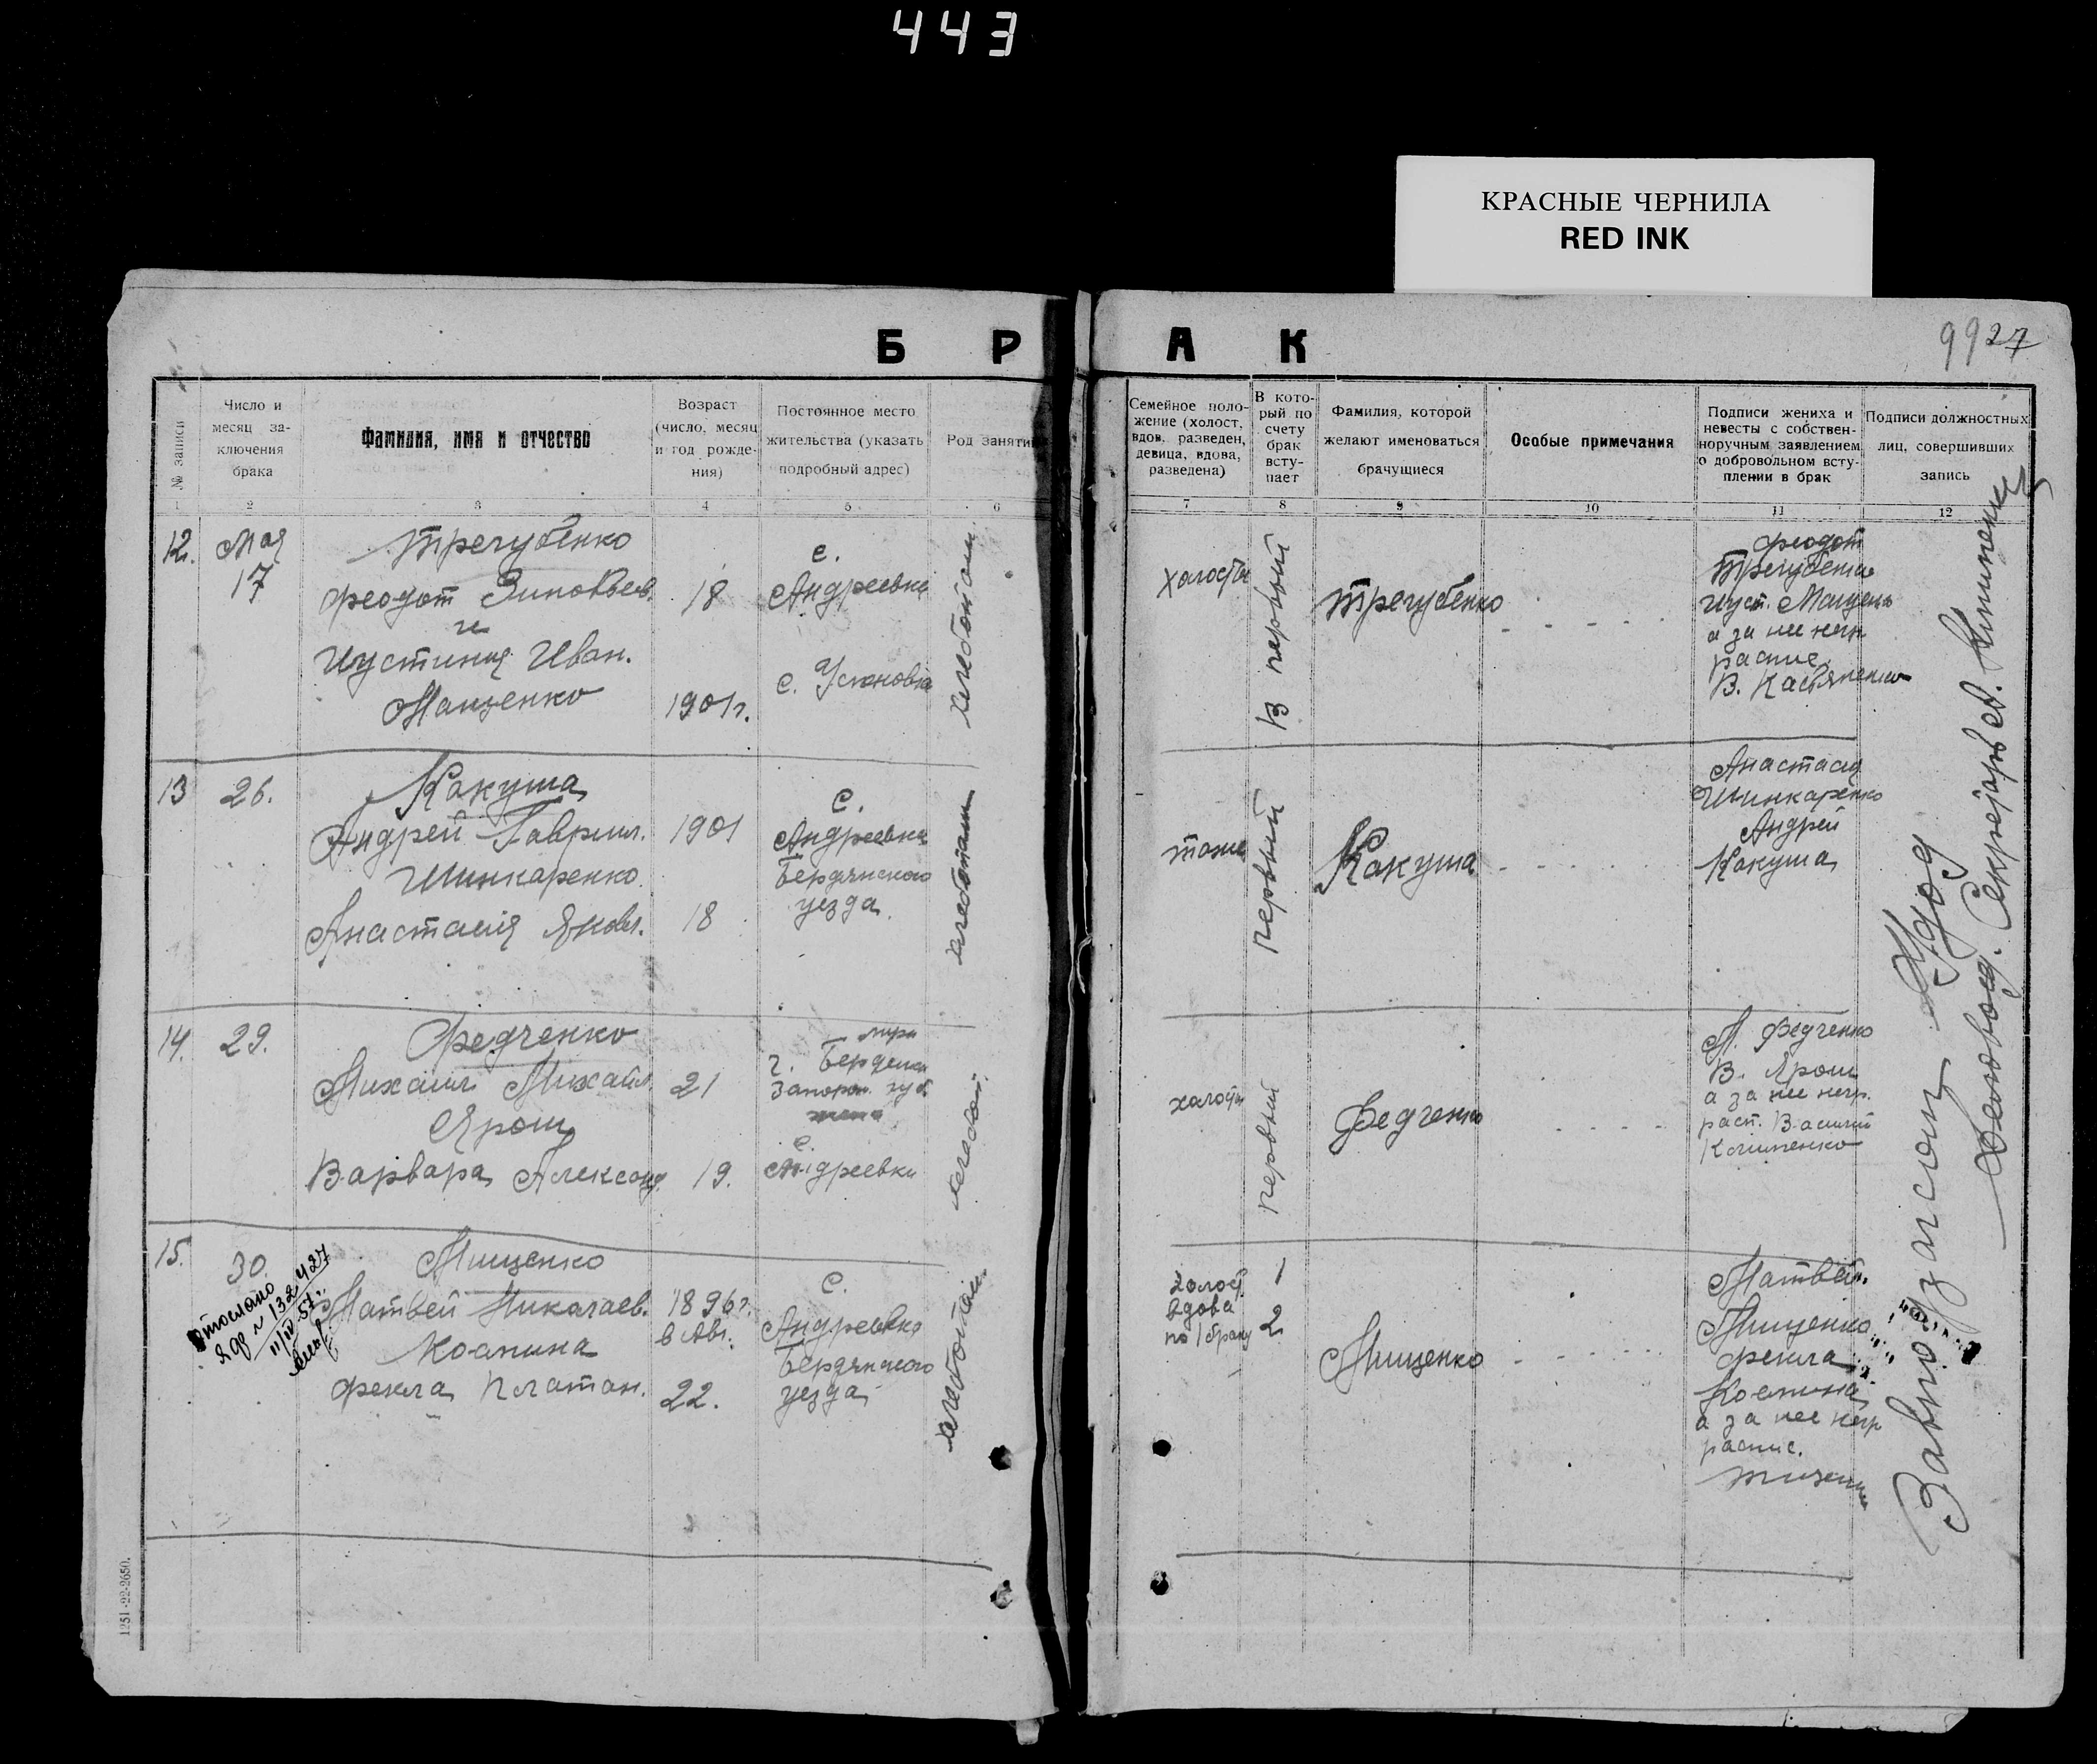 443
КРАСНЫЕ ЧЕРНИЛА
RED INK
Б Р А К
9927
№ записи
Число и
месяц за-
ключения
брака
Фамилия, имя и отчество
Возраст
(число, месяц
и год рожде-
ния)
Постоянное место
жительства (указать
подробный адрес)
Род заняти
Семейное поло-
жение (холост,
вдов, разведен,
девица, вдова,
разведена)
В кото-
рый по
счету
брак
всту-
пает
Фамилия, которой
желают именоваться
брачущиеся
Особые примечания
Подписи жениха и
невесты с собствен-
норучным заявлением
о добровольном всту-
плении в брак
Подписи должностных
лиц, совершивших
запись
1 2 3 4 5 6 7 8 9 10 11 12
12.
Мая
17
Трегубенко
Феодот Зиновьев.
и
Иустиния Иван.
Мащенко
18
1901 г.
с.
Андреевка
с. Успеновка
хлебопаш.
холосты
В первый
Трегубенко
Феодот
Трегубенко
Иуст. Мащенко
а за нее негр.
распис.
В. Касьяненко
13
26.
Какуша
Андрей Гаврил.
Шинкаренко
Анастасия Яковл.
1901
18
с.
Андреевка
Бердянского
уезда
хлебопаш.
тоже
первый
Какуша
Анастасия
Шинкаренко
Андрей
Какуша
14.
29.
Федченко
Михаил Михайл.
Ярош
Варвара Александ.
21
19.
г. Бердянск
Запорож. губ.
с.
Андреевка
хлебоп.
холосты
первый
Федченко
М. Федченко
В. Ярош
а за нее негр.
расп. Василий
Клименко
15.
30.
Отослано
в др № 132427
11/IV-57г.
Мищенко
Матвей Николаев.
Фекла Платон.
1896 г.
в Авг.
22.
С.
Андреевка
Бердянского
уезда
хлебопаш.
холост.
вдова
по 1 браку
2
Мищенко
Матвей
Мищенко
Фекла
а за нее негр
распис.
Завподзагсом
Секретарь